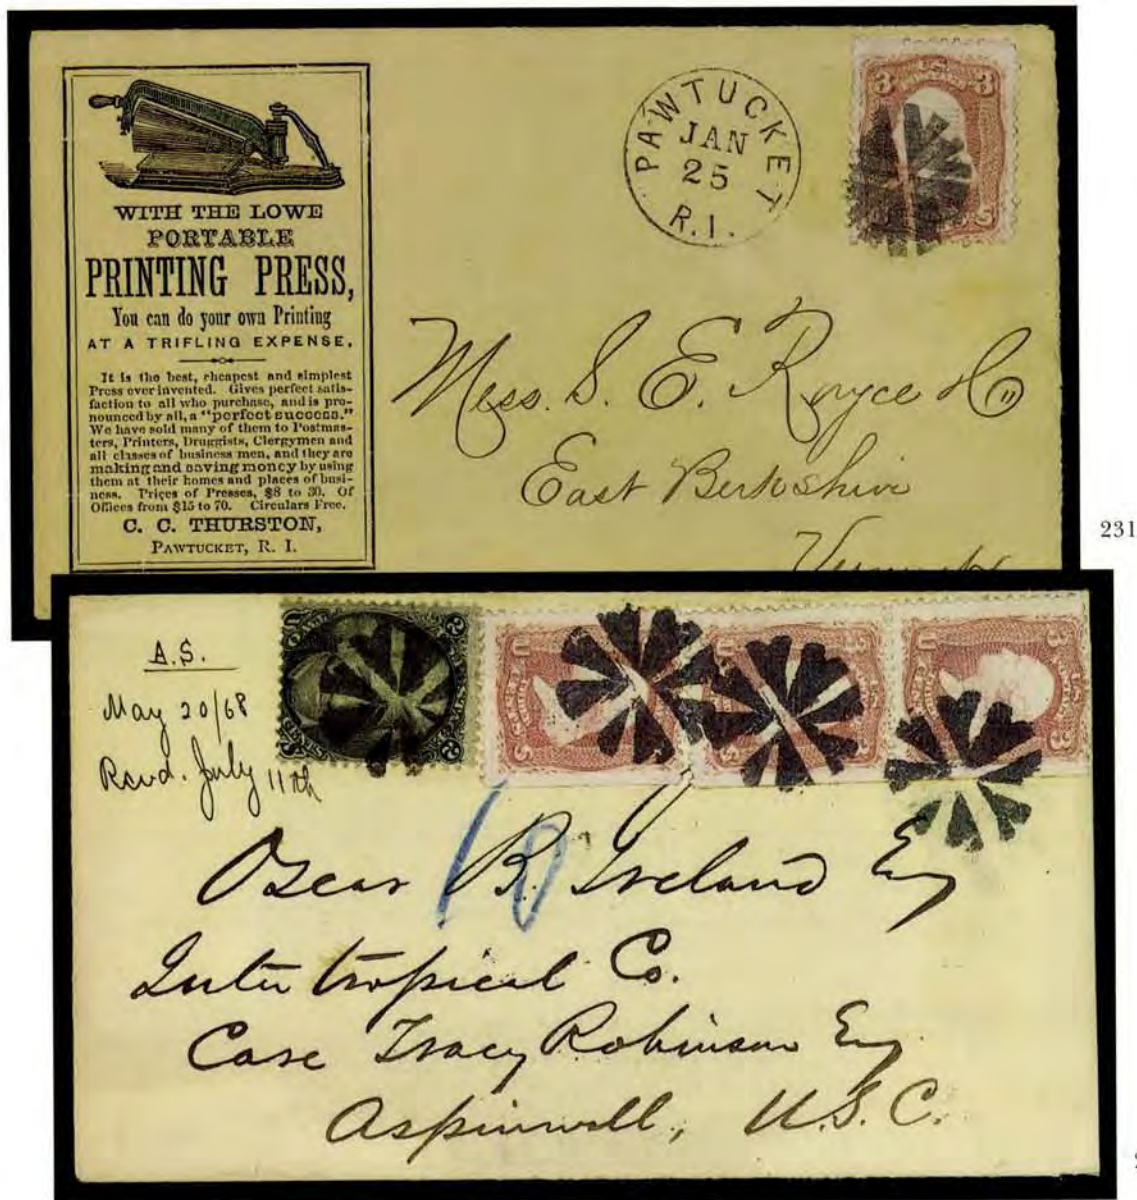 WITH THE LOWE
PORTABLE
PRINTING PRESS,
You can do your own Printing
AT A TRIFLING EXPENSE.
It is the best, cheapest and simplest
Press ever invented. Gives perfect satis-
faction to all who purchase, and is pro-
nounced by all, a "perfect success."
We have sold many of them to Postmas-
ters, Printers, Druggists, Clergymen and
all classes of business men, and they are
making and saving money by using
them at their homes and places of busi-
ness. Prices of Presses, $8 to 30. Of
Offices from $15 to 70. Circulars Free.
C. C. THURSTON,
PAWTUCKET, R. I.
PAWTUCKET
JAN
25
R.I.
3 U.S. 3
Mess. S. E. Royce & Co
East Berkshire
231
A.S.
May 20/68
Recvd. July 11th
10
Oscar R. Ireland Esq
Inter tropical Co.
Care Tracy Robinson Esq
Aspinwall, U.S.C.